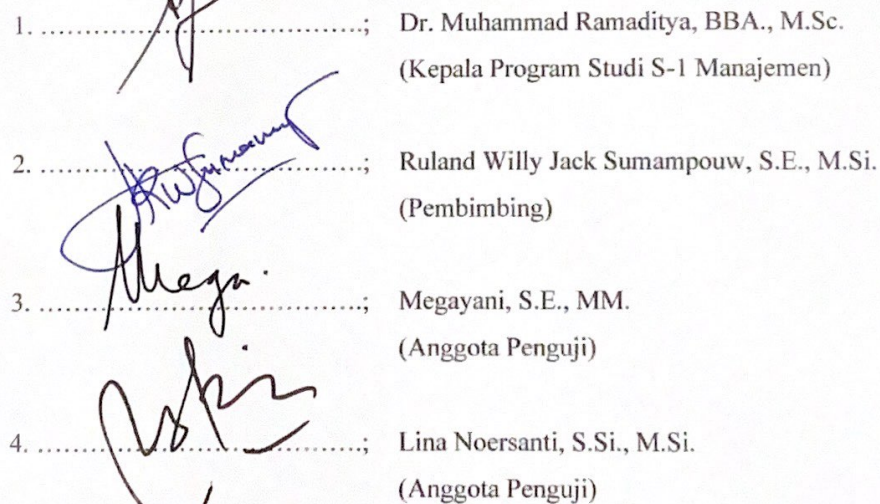 1. ..............................................; Dr. Muhammad Ramaditya, BBA., M.Sc.
(Kepala Program Studi S-1 Manajemen)
2. ..............................................; Ruland Willy Jack Sumampouw, S.E., M.Si.
(Pembimbing)
Mega.
3. ..............................................; Megayani, S.E., MM.
(Anggota Penguji)
4. ..............................................; Lina Noersanti, S.Si., M.Si.
(Anggota Penguji)